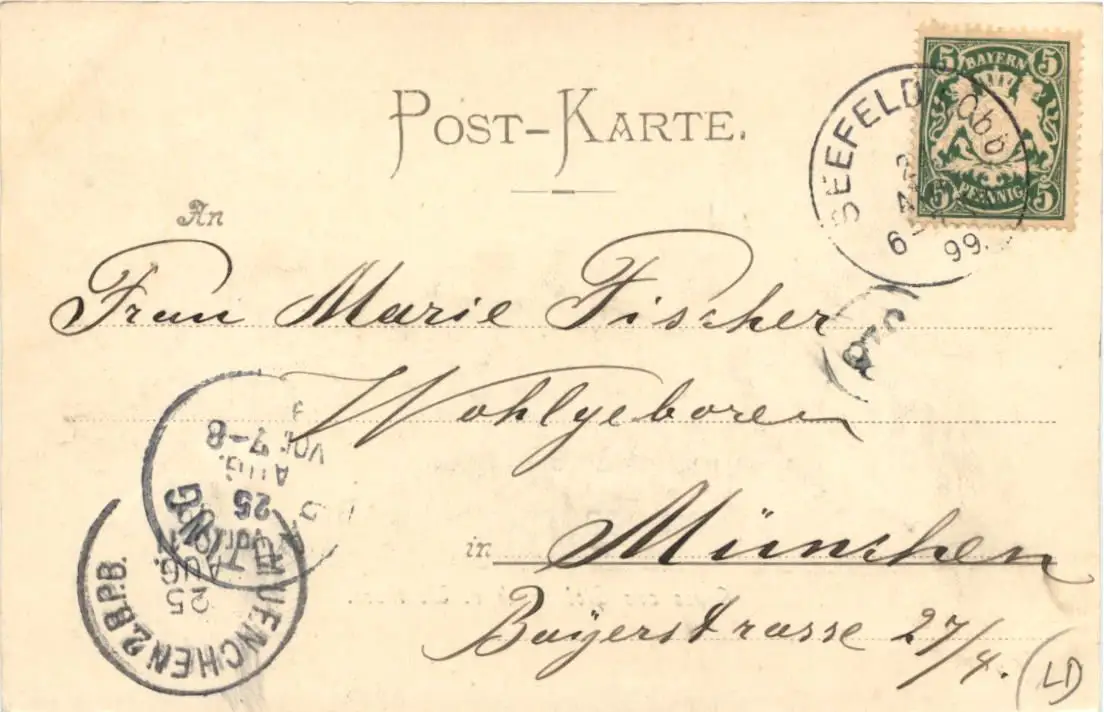 POST-KARTE.
5 BAYERN 5
5 PFENNIG 5
SEEFELD
99.
An
Frau Marie Fischer
Wohlgeboren
in München
Bayerstrasse 27/4.
(LD)
VOR. 7-8
AUG.
25
MUENCHEN 2.B.P.B.
25
AUG.